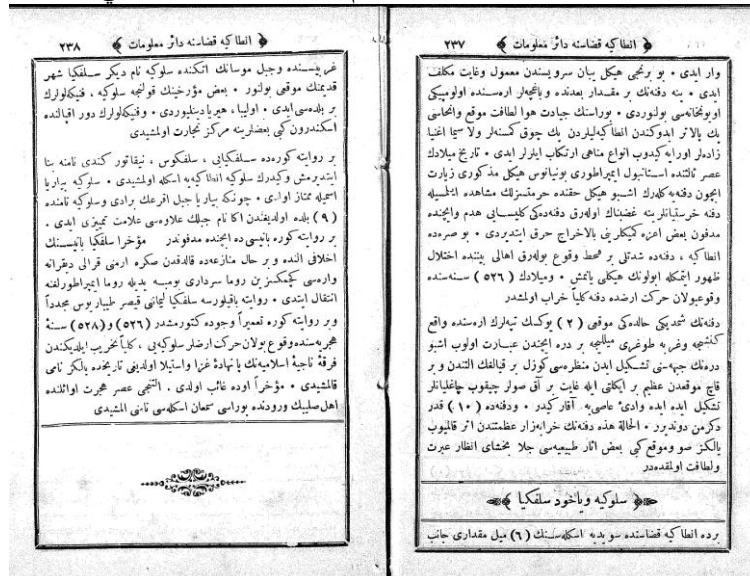 ﴿ انطاكيه قضاسنه دائر معلومات ﴾ ٢٣٧
وار ايدى • بو برنجى هيكل بيان سرويسندن معمول وغايت مكلف
ايدى • ينه دفنه‌نك بر مقدار بعدنده و باغچه‌لر اره‌سنده اولومپيكى
اويونخانه‌سى بولنوردى • بوراسنك جيادت هوا لطافت موقع وانحاسى
پك بالاتر ايدوكندن انطاكيه‌ليلردن پك چوق كمسنه‌لر ولا سيما اغنيا
زاده‌لر اورايه كيدوب انواع مناهى ارتكاب ايلرلر ايدى • تاريخ ميلادك
عصر ثالثنده استانبول ايمپراطورى يونيانوس هيكل مذكورى زيارت
ايچون دفنه‌يه كله‌رك اشبو هيكل حقنده حرمتسزلك مشاهده ايتمسيله
دفنه خرستيانلرينه غضبناك اوله‌رق دفنه‌ده‌كى كليسايى هدم وايچنده
مدفون بعض اعزه كميكلرينى بالاخراج حرق ايتدردى • بو صره‌ده
انطاكيه ، دفنه‌ده شدتلى بر قحط وقوع بوله‌رق اهالى بيننده اختلال
ظهور ايتمكله ابولونك هيكلى يانمش • وميلادك (٥٢٦) سنه‌سنده
وقوعبولان حركت ارضده دفنه كلياً خراب اولمشدر
دفنه‌نك شمديكى حالده‌كى موقعى (٢) يوكسك تپه‌لرك اره‌سنده واقع
كنيشجه وغربه طوغرى ميللیجه بر دره ايچندن عبارت اولوب اشبو
دره‌نك جبهه‌سنى تشكيل ايدن منظره‌سى كوزل بر قيالغك التندن و بر
قاچ موقعدن عظيم بر ايكلنى ايله غايت براق صولر چيقوب چاغليانلر
تشكيل ايده ايده وادئ عاصى‌يه آقار كيدر • ودفنه‌ده (١٠) قدر
دكرمن دونديرر • الحالة هذه دفنه‌نك خرابه‌زار عظمتندن اثر قالميوب
يالكز صو وموقع كبى بعض اثار طبيعيه‌سى جلا بخشاى انظار عبرت
ولطافت اولمقده‌در
﴿ سلوكيه وياخود سلفكيا ﴾
برده انطاكيه قضاسنده سويديه اسكله‌سنك (٦) ميل مقدارى جانب
﴿ انطاكيه قضاسنه دائر معلومات ﴾ ٢٣٨
غربيسنده وجبل موسانك اتكنده سلوكيه نام ديكر سلفكيا شهر
قديمنك موقعى بولنور • بعض مؤرخينك قولنجه سلوكيه ، فنيكه‌لولرك
بر بلده‌سى ايدى • اولبيا ، هيريا دينليوردى • وفنيكه‌لولرك دور اقبالنده
اسكندرون كبى بعضلرينه مركز تجارت اولمشيدى
بر روايته كوره‌ده سلفكيايى ، سلفكوس ، نيقاتور كندى نامنه بنا
ايتديرمش و كيدرك سلوكيه انطاكيه‌يه اسكله اولمشيدى • سلوكيه بياريا
اسميله ممتاز اولدى • چونكه بياريا جبل اقرعك برادى وسلوكيه نامنده
(٩) بلده اولديغندن اكا نام جبلك علاوه‌سى علامت تمييزى ايدى •
بر روايته كوره بانيسى ده ايچنده مدفوندر مؤخرا سلفكيا بانيسنك
اخلافى النده و بر حال منازعه‌ده قالدقدن صكره ارمنى قرالى ديقرانه
وارەسى كچمكسزين روما سردارى بومبيه يديله روما ايمپراطورلغنه
انتقال ايتدى • روايته باقيلورسه سلفكيا ليمانى قيصر طيباريوس مجدداً
وبر روايته كوره تعميراً وجوده كتورمشدر (٥٢٦) و (٥٢٨) سنۀ
هجريه‌سنده وقوع بولان حركت ارضلر سلوكيه‌يى ، كلياً تخريب ايلديكندن
فرقۀ ناجيۀ اسلاميه‌نك يا نهاده غزا واستيلا اولديغى تاريخده يالكز نامى
قالمشيدى • مؤخراً اوده غائب اولدى . التنجى عصر هجرت اوائلنده
اهل صليبك ورودنده بوراسى سمعان اسكله‌سى نامنى المشيدى